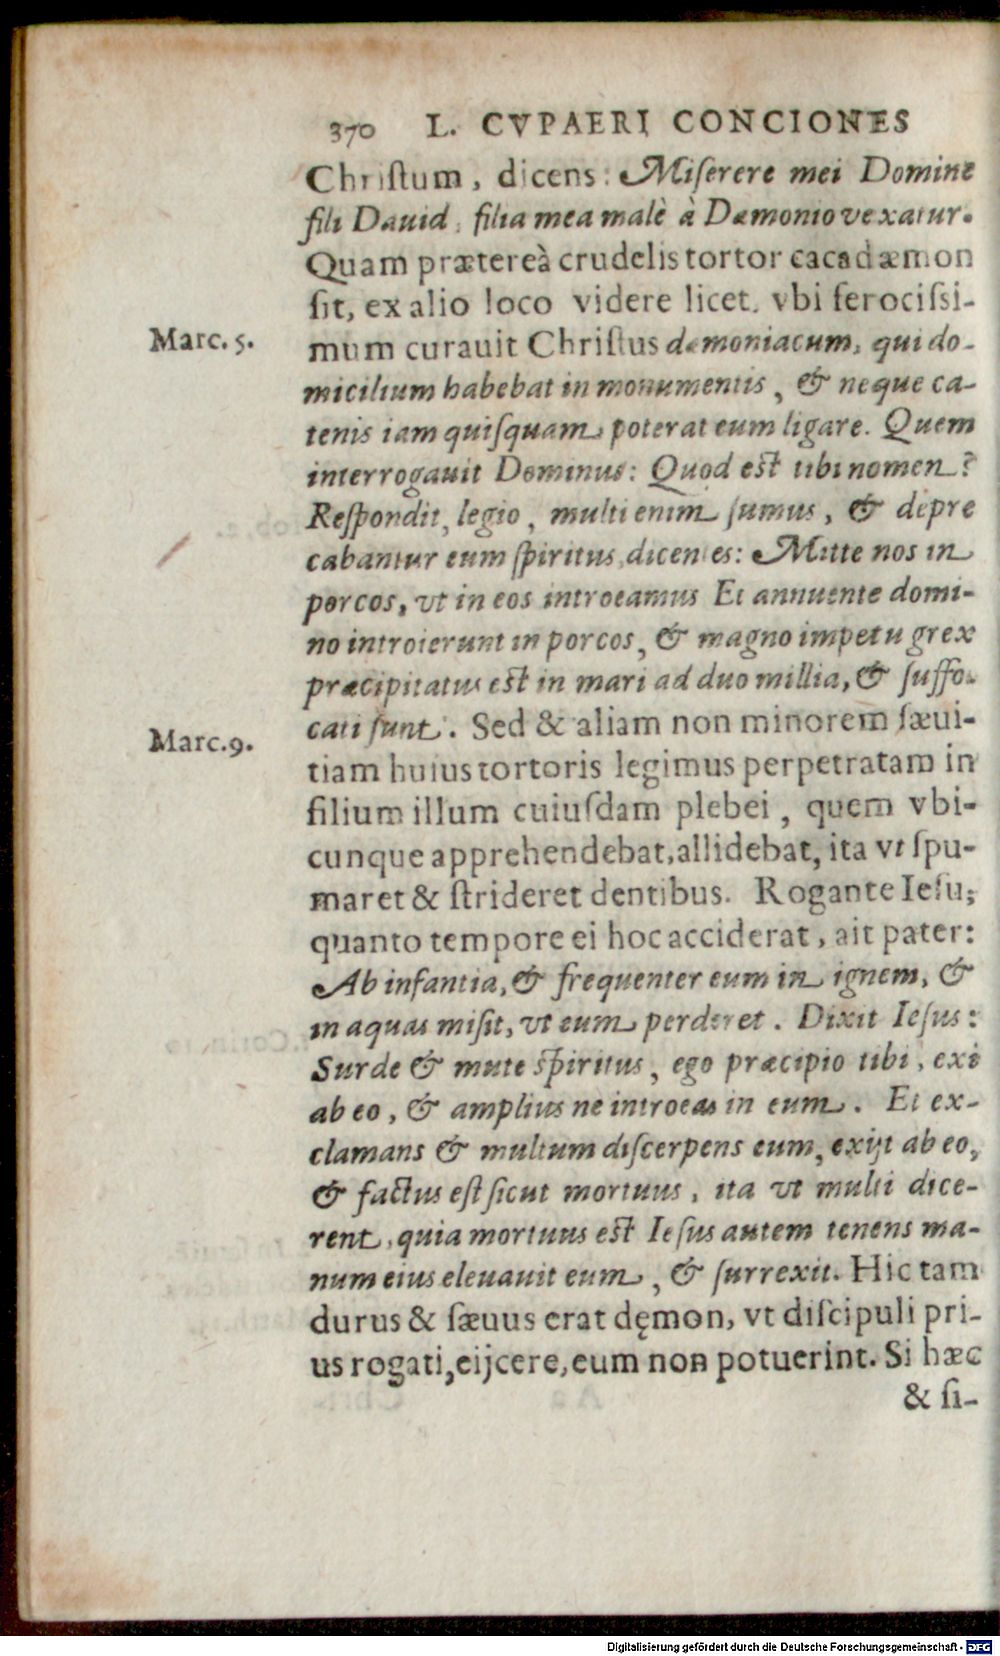 370 L. CVPAERI CONCIONES
Chriſtum, dicens: Miſerere mei Domine
fili Dauid, filia mea malè à Dæmonio vexatur.
Quam prætereà crudelis tortor cacadæmon
ſit, ex alio loco videre licet, vbi ferociſsi-
Marc. 5.
mum curauit Chriſtus dæmoniacum, qui do-
micilium habebat in monumentis, & neque ca-
tenis iam quiſquam poterat eum ligare. Quem
interrogauit Dominus: Quod est tibi nomen?
Reſpondit, legio, multi enim ſumus, & depre
cabantur eum ſpiritus, dicentes: Mitte nos in
porcos, vt in eos introeamus Et annuente domi-
no introierunt in porcos, & magno impetu grex
præcipitatus est in mari ad duo millia, & ſuffo-
cati ſunt. Sed & aliam non minorem ſæui-
Marc. 9.
tiam huius tortoris legimus perpetratam in
filium illum cuiuſdam plebei, quem vbi-
cunque apprehendebat, allidebat, ita vt ſpu-
maret & ſtrideret dentibus. Rogante Ieſu,
quanto tempore ei hoc acciderat, ait pater:
Ab infantia, & frequenter eum in ignem, &
in aquas miſit, vt eum perderet. Dixit Ieſus:
Surde & mute ſpiritus, ego præcipio tibi, exi
ab eo, & amplius ne introeas in eum. Et ex-
clamans & multum diſcerpens eum, exijt ab eo,
& factus eſt ſicut mortuus, ita vt multi dice-
rent, quia mortuus est Ieſus autem tenens ma-
num eius eleuauit eum, & ſurrexit. Hic tam
durus & ſæuus erat dęmon, vt diſcipuli pri-
us rogati, eijcere, eum non potuerint. Si hæc
& ſi-
Digitalisierung gefördert durch die Deutsche Forschungsgemeinschaft - DFG